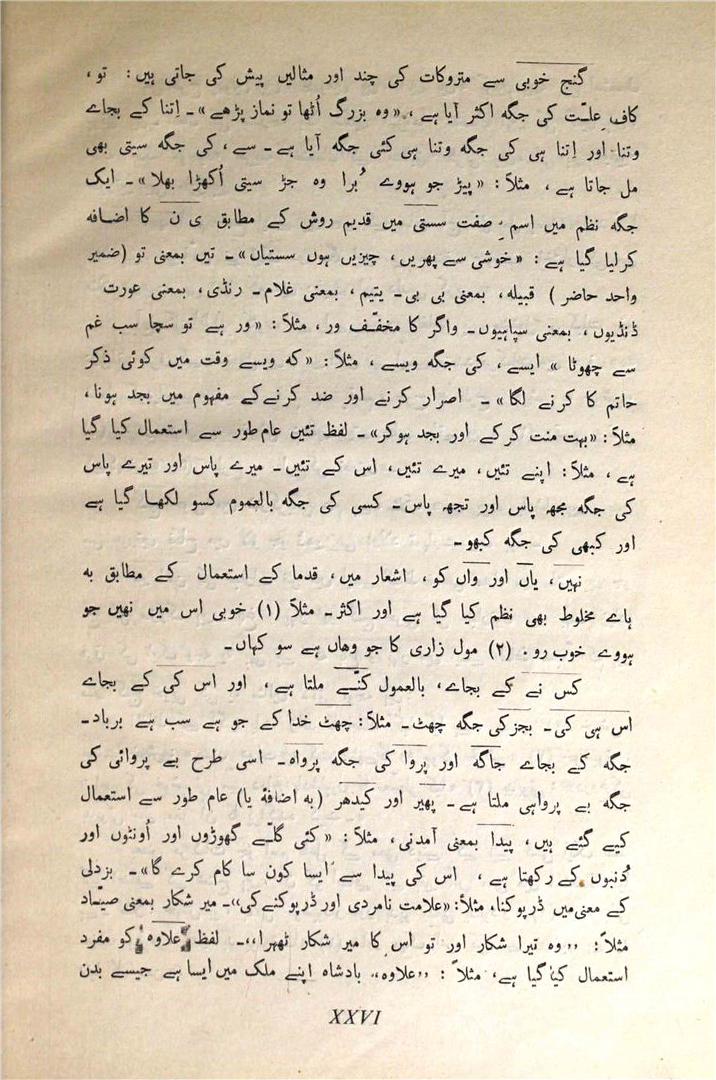 گنج خوبی سے متروکات کی چند اور مثالیں پیش کی جاتی ہیں: تو،
کاف ِعلّت کی جگہ اکثر آیا ہے، «وہ بزرگ اُٹھا تو نماز پڑھے»۔ اِتنا کے بجاے
وتنا اور اِتنا ہی کی جگہ وتنا ہی کئی جگہ آیا ہے۔ سے، کی جگہ سیتی بھی
مل جاتا ہے، مثلاً: «پیڑ جو ہووے بُرا وہ جڑ سیتی اُکھڑا بھلا»۔ ایک
جگہ نظم میں اسم ِ صفت سستی میں قدیم روش کے مطابق ی ن کا اضافہ
کرلیا گیا ہے: «خوشی سے پھریں، چیزیں ہوں سستیاں»۔ تیں بمعنی تو (ضمیر
واحد حاضر) قبیلہ، بمعنی بی بی۔ یتیم، بمعنی غلام۔ رنڈی، بمعنی عورت
ڈنڈیوں، بمعنی سپاہیوں۔ واگر کا مخفّف ور، مثلاً: «ور ہے تو سچا سب غم
سے چھوٹا» ایسے، کی جگہ ویسے، مثلاً: «کہ ویسے وقت میں کوئی ذکر
حاتم کا کرنے لگا»۔ اصرار کرنے اور ضد کرنےکے مفہوم میں بجد ہونا،
مثلاً: «بہت منت کرکے اور بجد ہوکر»۔ لفظ تئیں عام طور سے استعمال کیا گیا
ہے، مثلاً: اپنے تئیں، میرے تئیں، اس کے تئیں۔ میرے پاس اور تیرے پاس
کی جگہ مجھہ پاس اور تجھہ پاس۔ کسی کی جگہ بالعموم کسو لکھا گیا ہے
اور کبھی کی جگہ کبھو۔
نہیں، یاں اور واں کو، اشعار میں، قدما کے استعمال کے مطابق بہ
ہاے مخلوط بھی نظم کیا گیا ہے اور اکثر۔ مثلاً (۱) خوبی اس میں نھیں جو
ہووے خوب رو. (۲) مول زاری کا جو وھاں ہے سو کہاں۔
کس نے کے بجاے، بالعمول کنّے ملتا ہے، اور اس کی کے بجاے
اس ہی کی۔ بجزکی جگہ چھٹ۔ مثلاً: چھٹ خدا کے جو ہے سب ہے برباد۔
جگہ کے بجاے جاگہ اور پروا کی جگہ پرواہ۔ اسی طرح بے پروائی کی
جگہ بے پرواہی ملتا ہے۔ پھیر اور کیدھر (بہ اضافۂ یا) عام طور سے استعمال
کیے گئے ہیں، پیدا بمعنی آمدنی، مثلاً: «کئی گلّے گھوڑوں اور اُونٹوں اور
دُنبوں کے رکھتا ہے، اس کی پیدا سے ایسا کون سا کام کرے گا»۔ بزدلی
کے معنی میں ڈرپوکنا، مثلاً: «علامت نامردی اور ڈرپوکنے کی»۔ میر شکار بمعنی صیّاد
مثلاً: ,,وہ تیرا شکار اور تو اس کا میر شکار ٹھہرا،،۔ لفظ علاوہ کو مفرد
استعمال کیا گیا ہے، مثلاً: ,,علاوہ،، بادشاہ اپنے ملک میں ایسا ہے جیسے بدن
XXVI